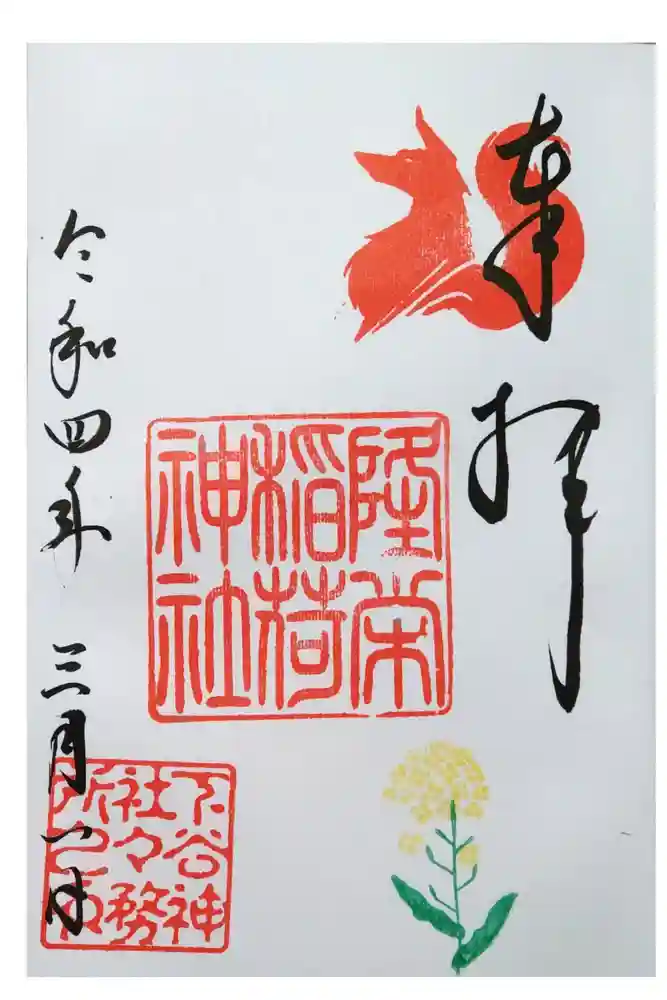 奉拝
隆栄
稲荷
神社
令和四年 三月一日
下谷神
社々務
所之印